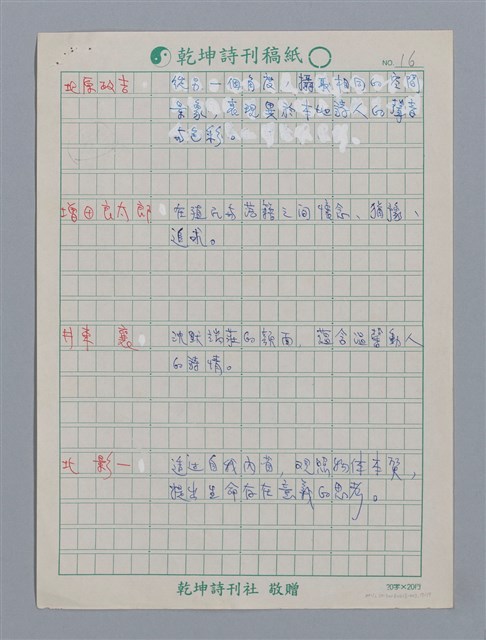 乾坤詩刊稿紙
NO. 16
北原政吉 從另一個角度,攝取相同的空間
景象,表現異於本地詩人的聲音
與色彩。
增田良太郎 在殖民與落籍之間懷念、猶豫、
追求。
井東襄 沈默端莊的顏面,蘊含溫馨動人
的詩情。
北影一 透過自我內省,观照物体本質,
提出生命存在意義的思考。
乾坤詩刊社 敬贈
20字×20行